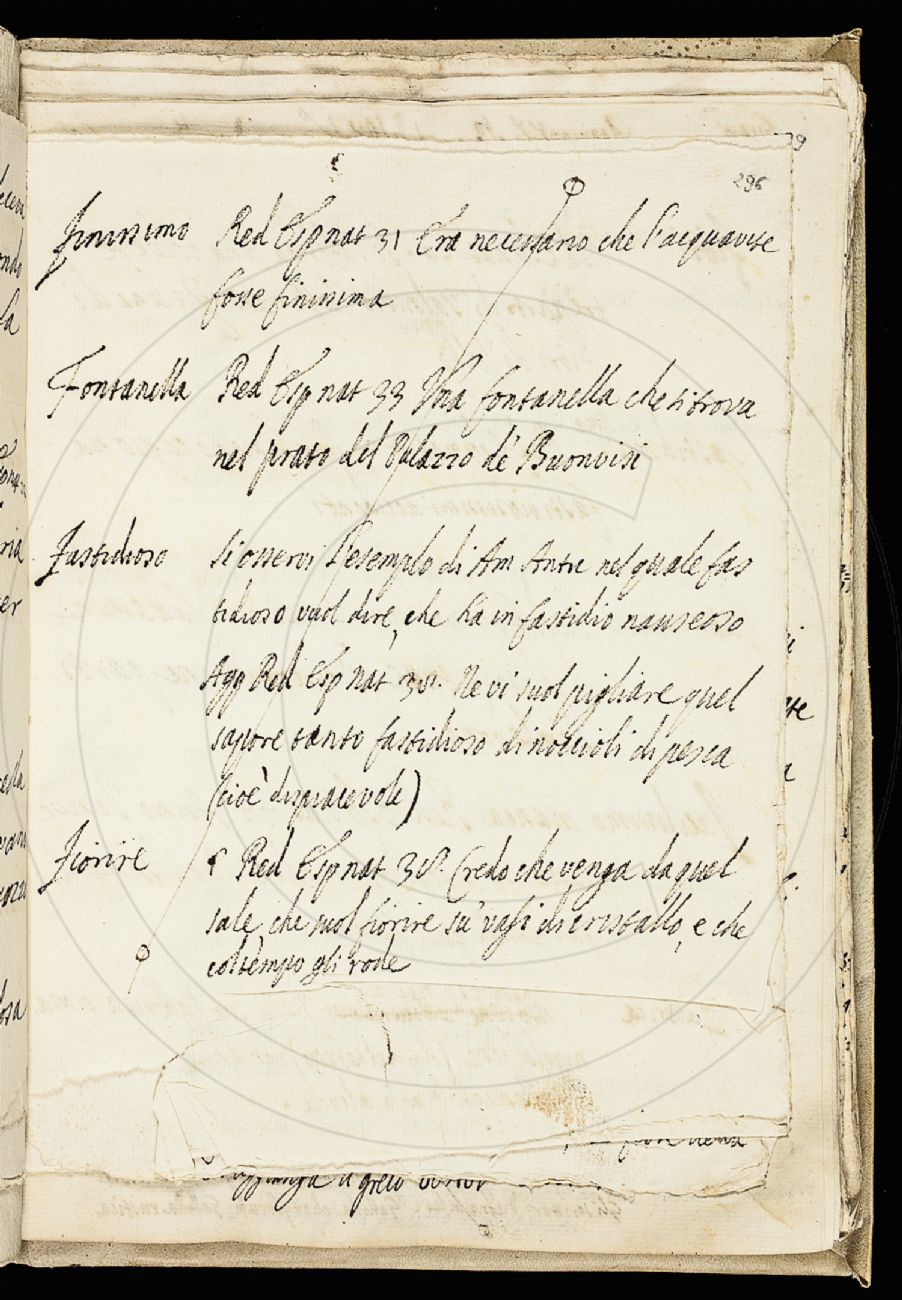 296
Finissimo Red Esp nat 31 Era necessario che l'acquavite
fosse finissima
Fontanella Red Esp nat 33 Una fontanella che si trova
nel prato del Palazzo de' Buonvisi
Fastidioso Si osservi l'esemplo di Am Ant nel quale fas
tidioso vuol dire, che hà in fastidio nauseoso
Agg Red Esp nat 38. Ne vi suol pigliare quel
sapore tanto fastidioso di noccioli di pesca
(cioè dispiacevole)
Fiorire Red Esp nat 38. Credo che venga da quel
sale, che suol fiorire su' vasi di cristallo, e che
col tempo gli rode
il greco